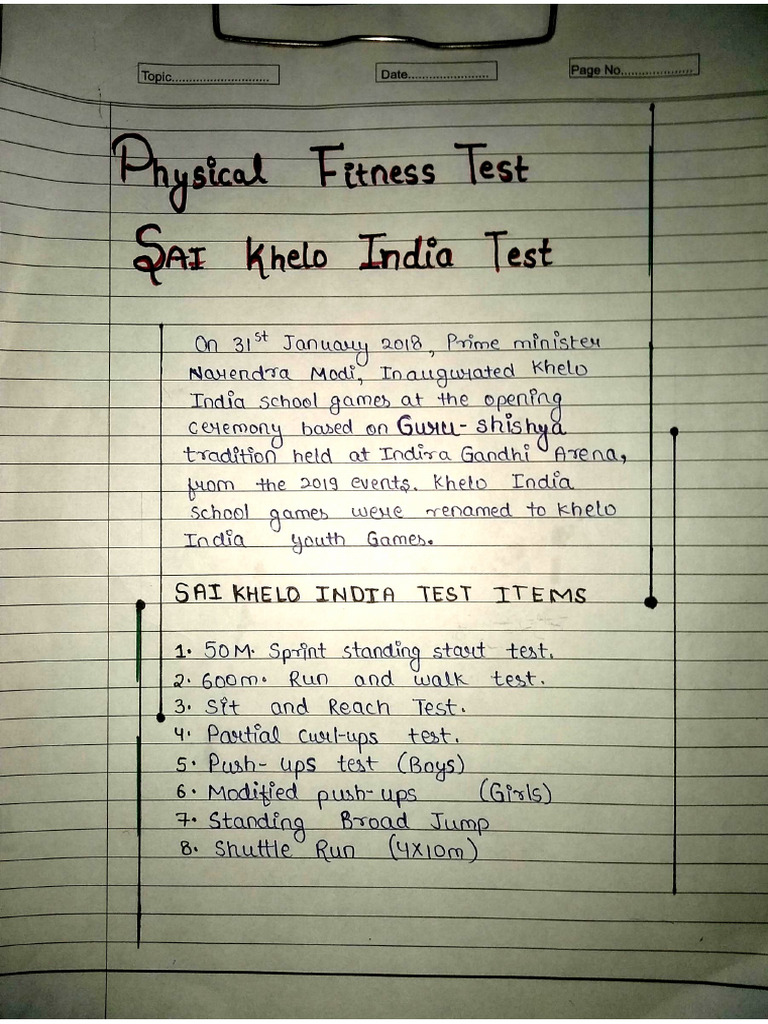 Topic............................
Date.......................
Page No.....................
Physical Fitness Test
SAI Khelo India Test
On 31st January 2018, Prime minister
Narendra Modi, Inaugurated Khelo
India school games at the opening
ceremony based on Guru-shishya
tradition held at Indira Gandhi Arena,
from the 2019 events. Khelo India
school games were renamed to Khelo
India youth Games.
SAI KHELO INDIA TEST ITEMS
1. 50M. Sprint standing start test.
2. 600m. Run and walk test.
3. Sit and Reach Test.
4. Partial Curl-ups test.
5. Push-ups test (Boys)
6. Modified push-ups (Girls)
7. Standing Broad Jump
8. Shuttle Run (4x10m)